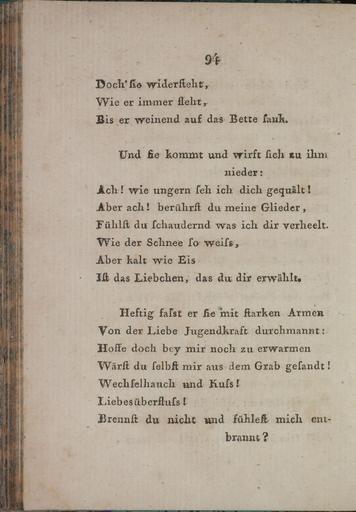 94
Doch sie widersteht,
Wie er immer fleht,
Bis er weinend auf das Bette sank.
Und sie kommt und wirft sich zu ihm
nieder:
Ach! wie ungern seh ich dich gequält!
Aber ach! berührst du meine Glieder,
Fühlst du schaudernd was ich dir verheelt.
Wie der Schnee so weiss,
Aber kalt wie Eis
Ist das Liebchen, das du dir erwählt.
Heftig fasst er sie mit starken Armen
Von der Liebe Jugendkraft durchmannt:
Hoffe doch bey mir noch zu erwarmen
Wärst du selbst mir aus dem Grab gesandt!
Wechselhauch und Kuss!
Liebesüberfluss!
Brennst du nicht und fühlest mich ent-
brannt?